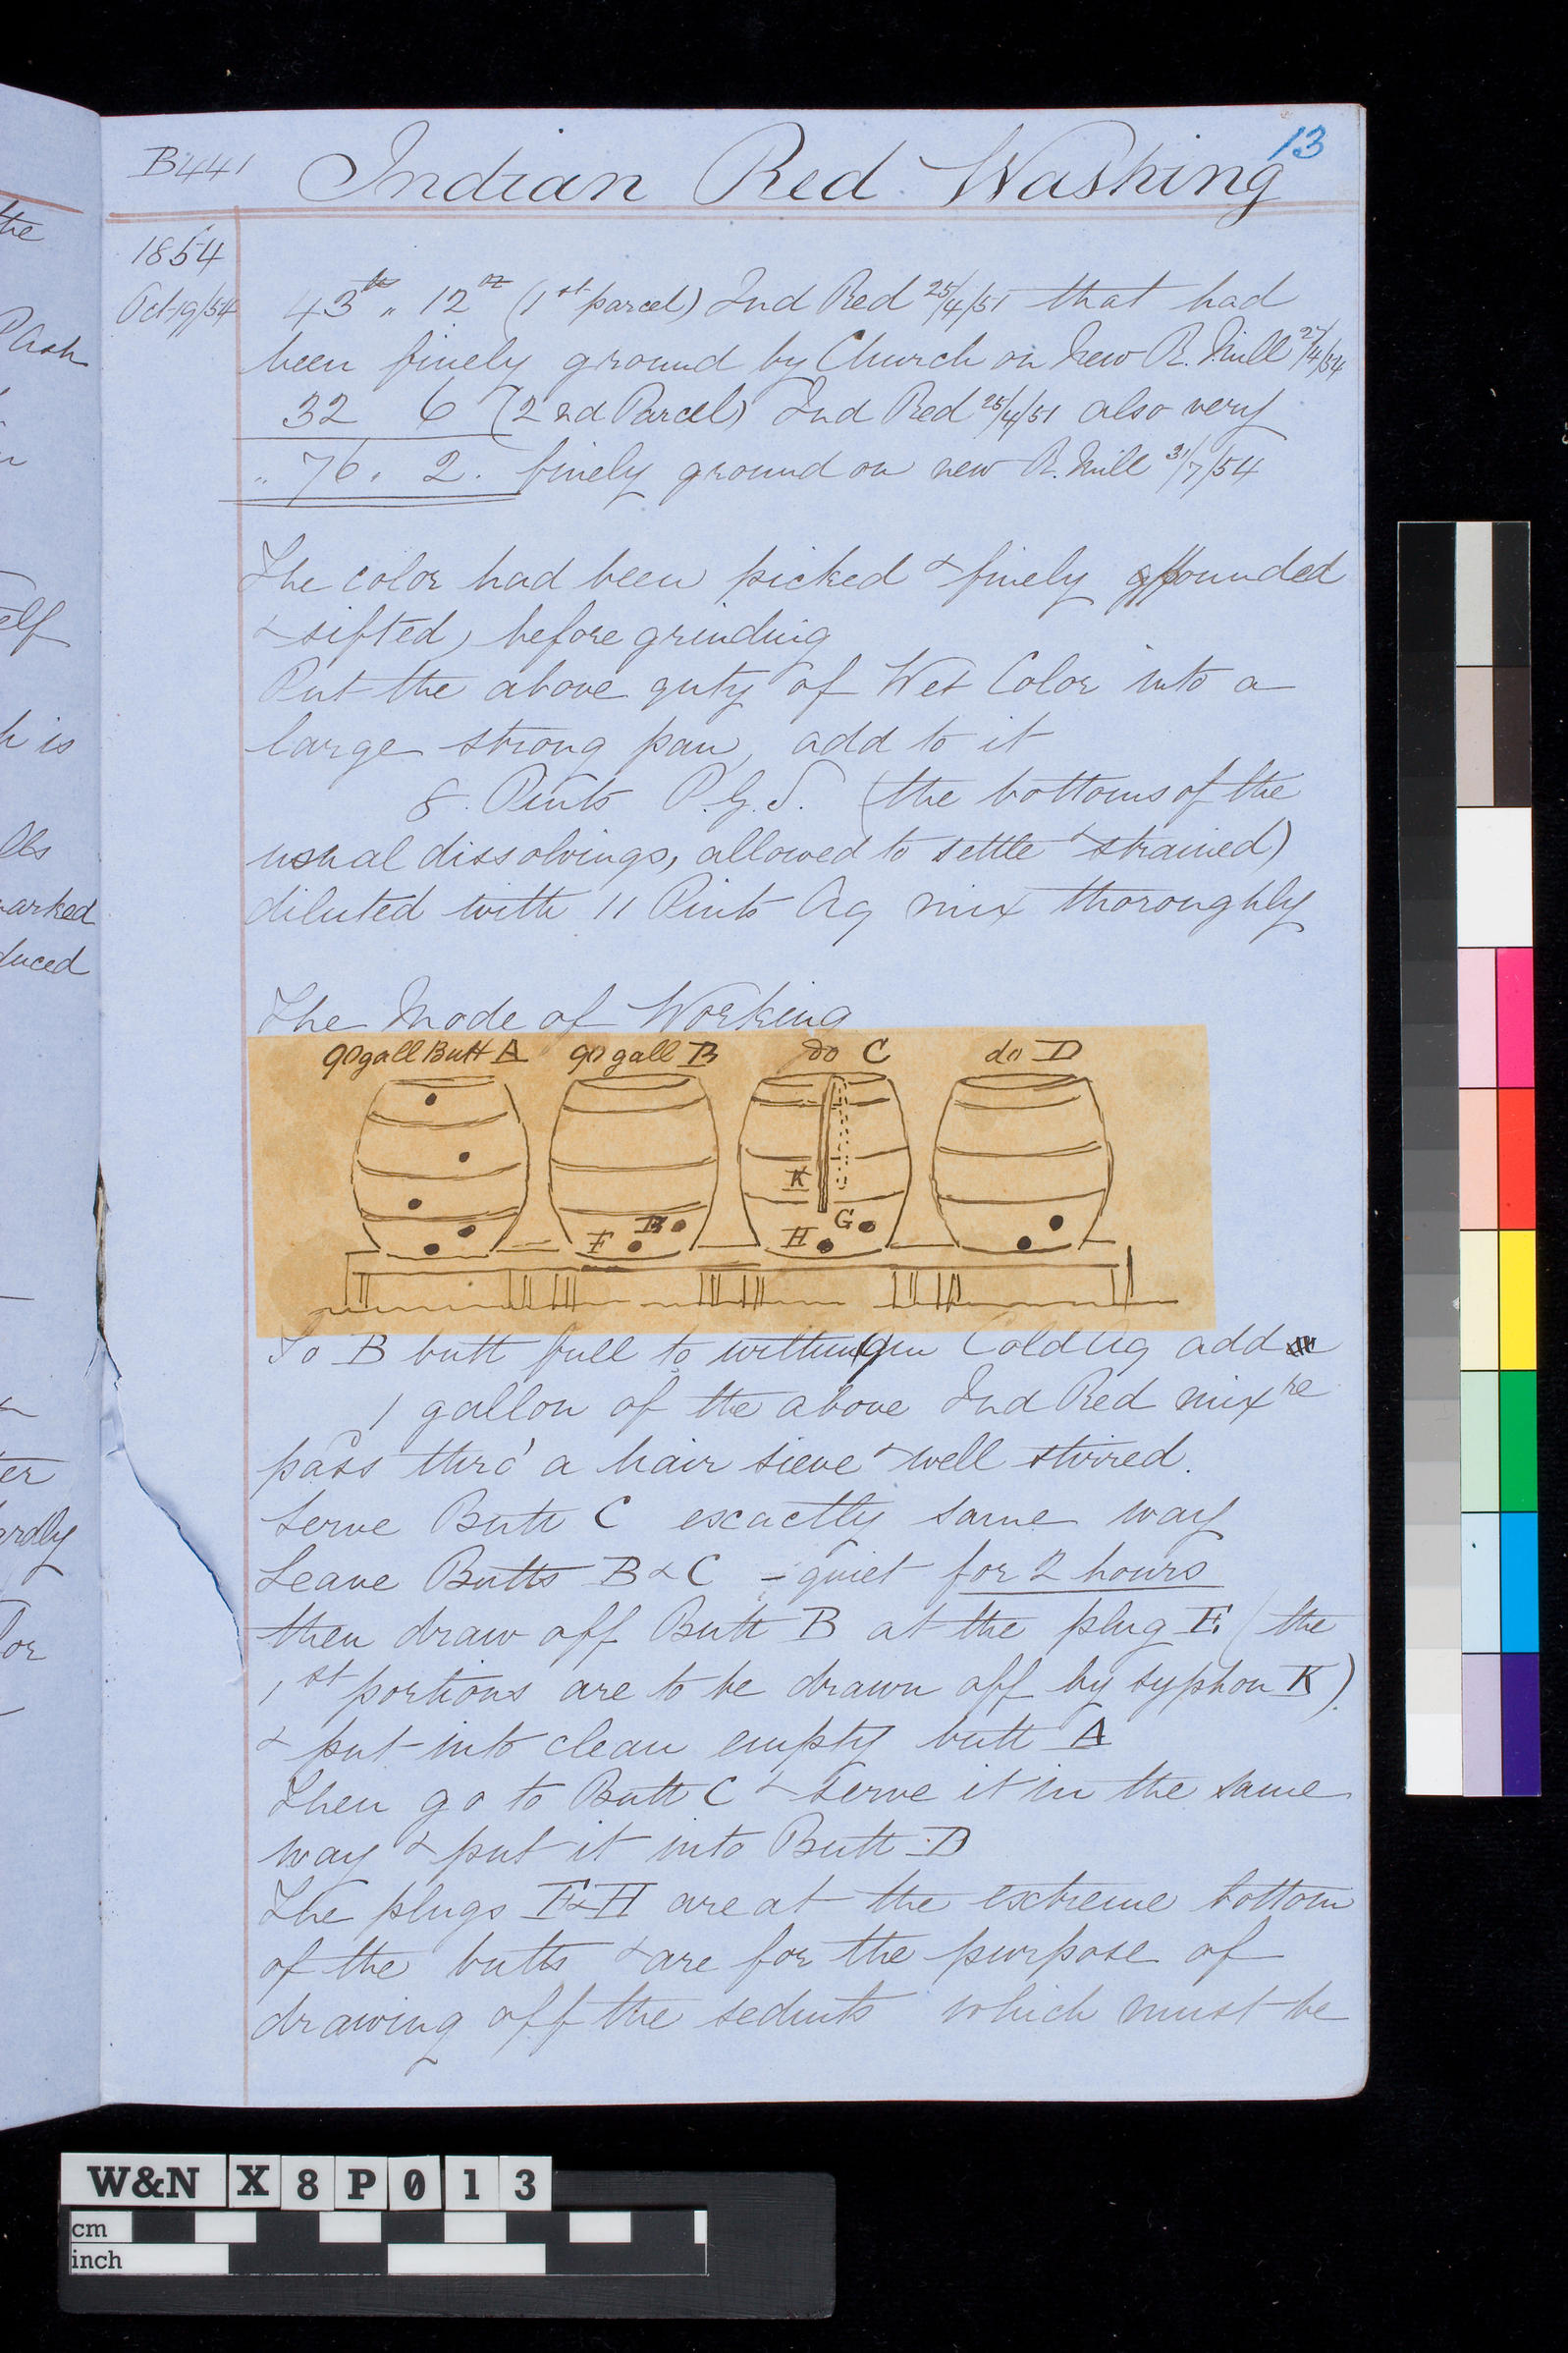 13
B441 Indian Red Washing
1854
Oct 19/54 43 lb " 12 oz (1st parcel) Ind Red 25/4/51 that had
been finely ground by Church on New R. Mill 27/4/54
32 6 (2nd Parcel) Ind Red 25/4/51 also very
" 76 . 2 . finely ground on new R. Mill 31/7/54
The color had been picked & finely pounded
& sifted, before grinding
Put the above qnty of Wet Color into a
large strong pan, add to it
8. Pints P.G.S. (the bottoms of the
usual dissolvings, allowed to settle & strained)
diluted with 11 Pints Aq mix thoroughly
The Mode of Working
90 gall Butt A 90 gall B do C do D
K
E G
F H
To B butt full to within 9in Cold Aq add
1 gallon of the above Ind Red mixre
pass thro' a hair sieve & well stirred.
Serve Butt C escactly same way
Leave Butts B & C - quiet for 2 hours
then draw off Butt B at the plug E (the
1st portions are to be drawn off by syphon K)
& put into clean empty butt A
Then go to Butt C & serve it in the same
way & put it into Butt D
The plugs F & H are at the extreme bottom
of the butts & are for the purpose of
drawing off the sedmts which must be
the
PAsh
elf
h is
lls
marked
duced
er
ardly
or
W&N X8P013
cm
inch